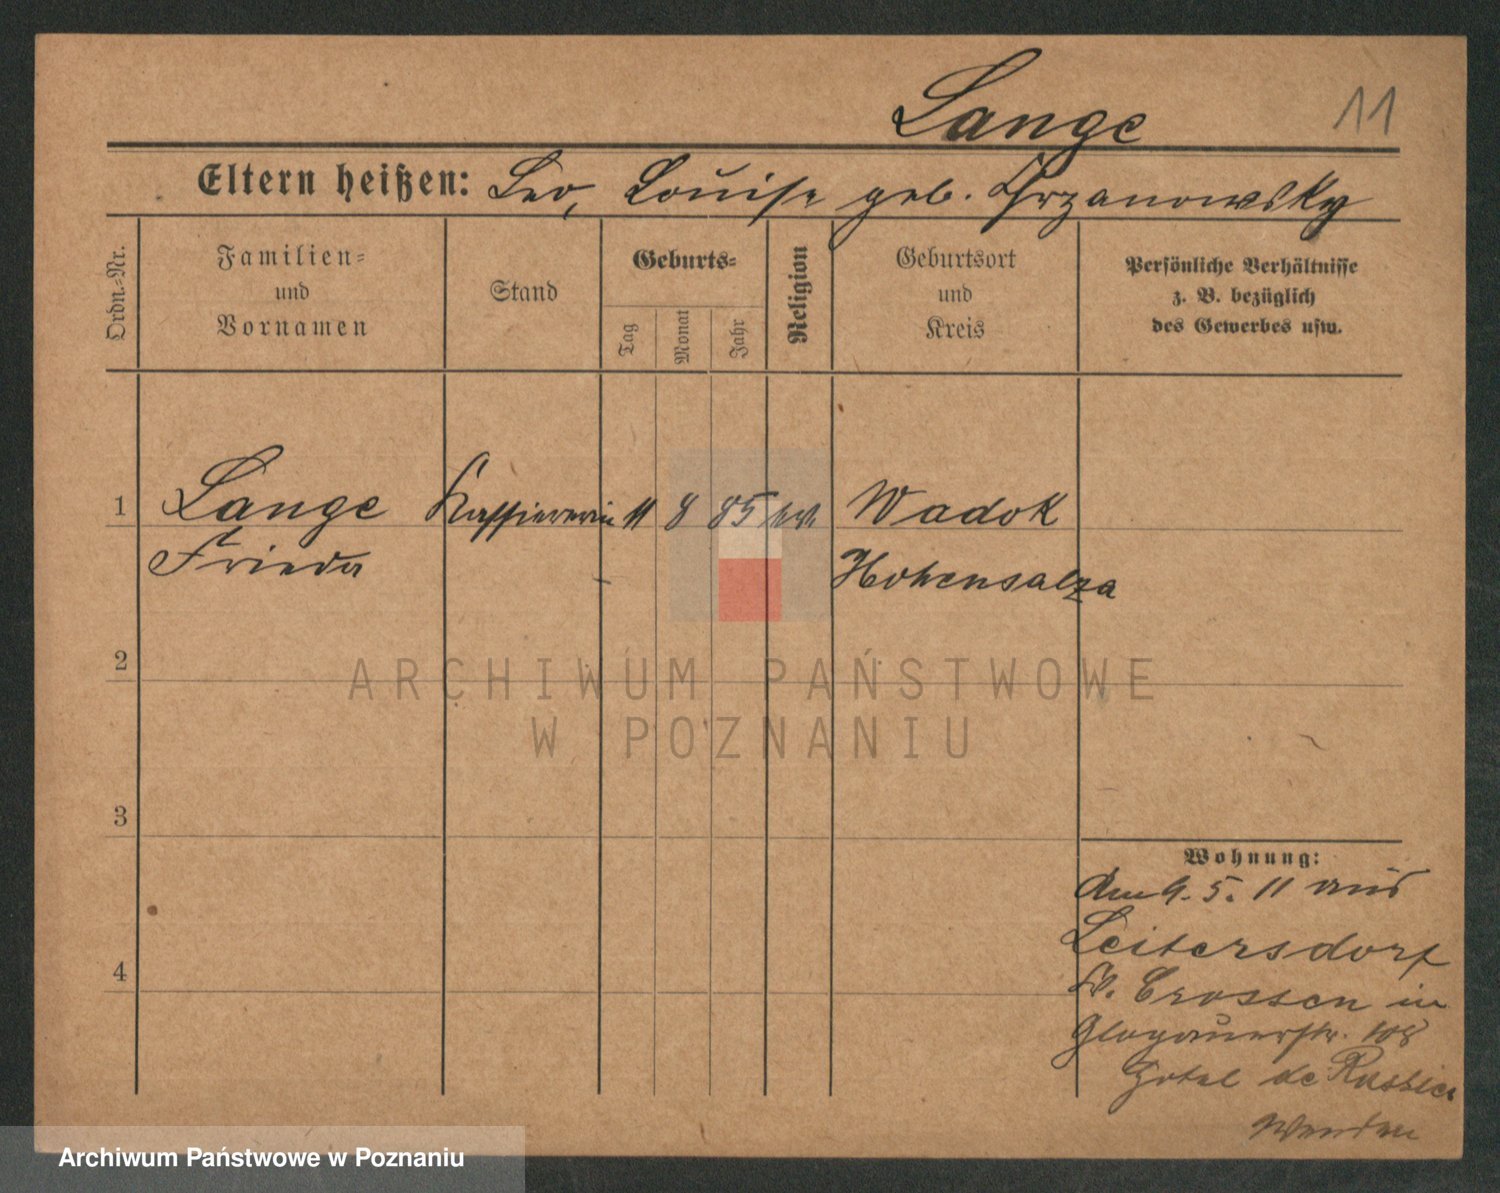 Lange 11
Eltern heißen: Leo, Louise geb. Chrzanowsky
Ordn.-Nr.
Familien- und Vornamen
Stand
Geburts-
Tag
Monat
Jahr
Religion
Geburtsort und Kreis
Persönliche Verhältnisse
z. B. bezüglich
des Gewerbes usw.
1 Lange Kassiererin 11 8 85 Wadok
Frieda Hohensalza
2
ARCHIWUM PAŃSTWOWE
W POZNANIU
3
Wohnung:
Am 9. 5. 11 aus
Leitersdorf
Kr. Crossen in
Glogauerstr. 108
Hotel de Russie
4
Archiwum Państwowe w Poznaniu